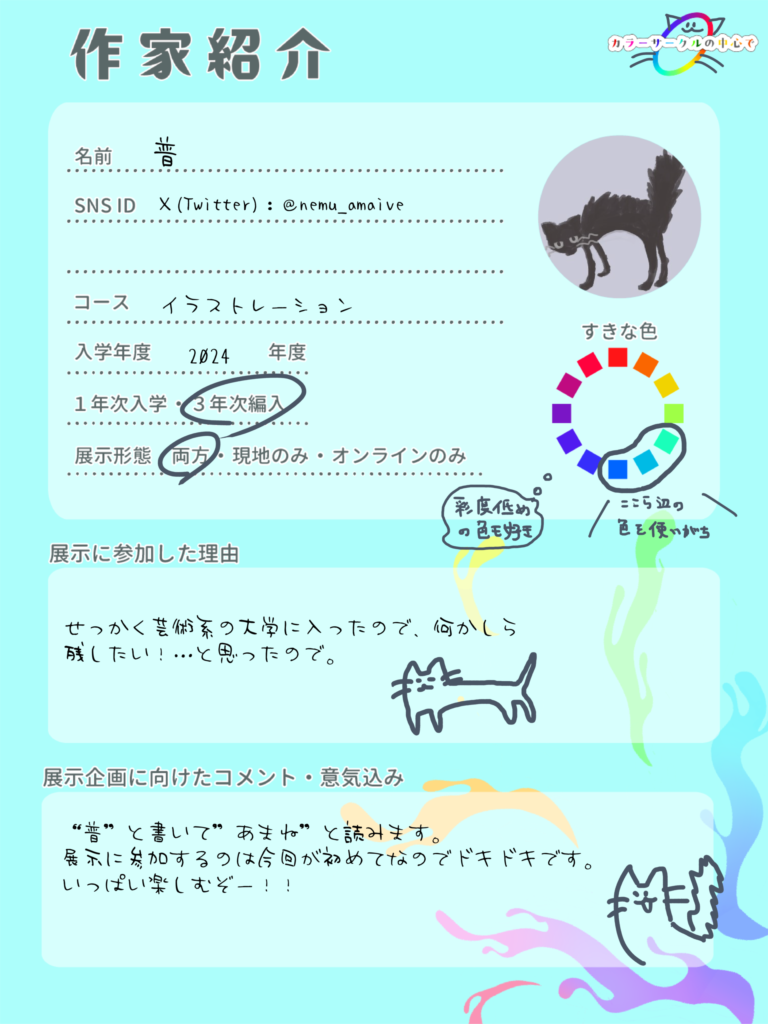 作家紹介
カラーサークルの中心で
名前 普
SNS ID X(Twitter) : @nemu_amaive
コース イラストレーション
入学年度 2024 年度
1年次入学・3年次編入
展示形態 両方・現地のみ・オンラインのみ
すきな色
彩度低め
の色も好き
ここら辺の
色を使いがち
展示に参加した理由
せっかく芸術系の大学に入ったので、何かしら
残したい!…と思ったので。
展示企画に向けたコメント・意気込み
“普”と書いて”あまね”と読みます。
展示に参加するのは今回が初めてなのでドキドキです。
いっぱい楽しむぞー!!